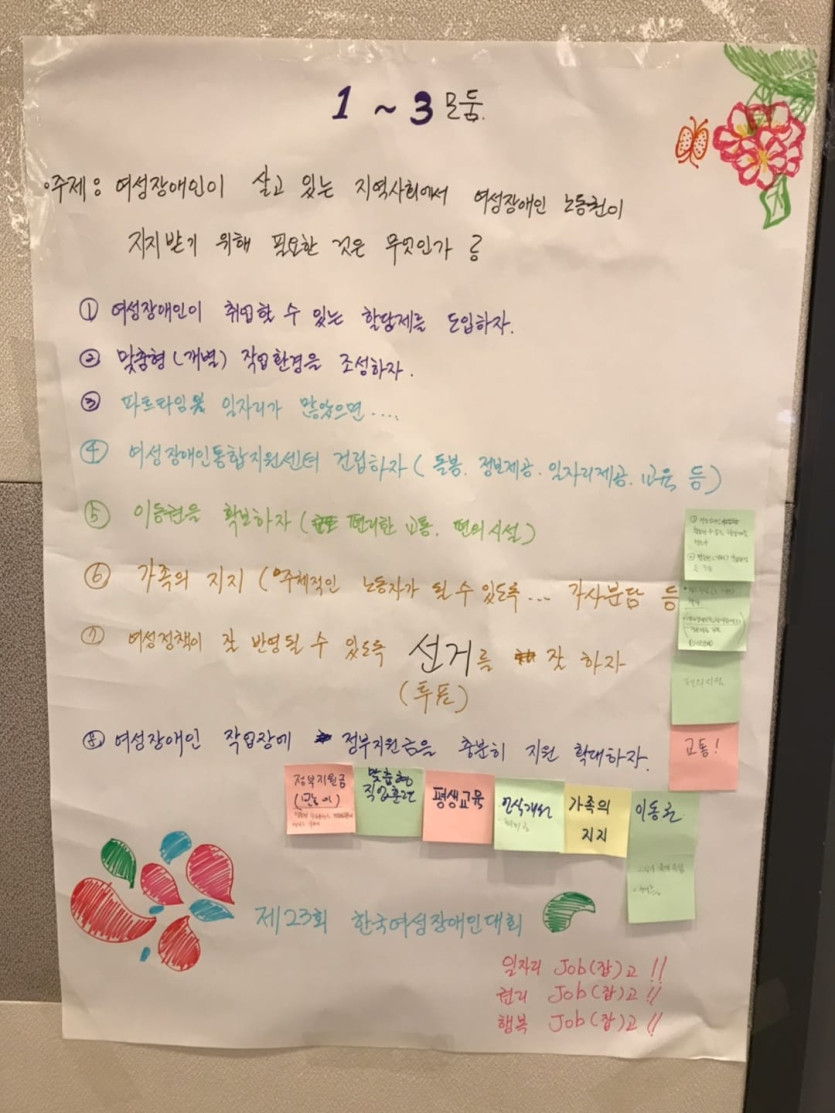 1 ~ 3 모둠.
주제 : 여성장애인이 살고 있는 지역사회에서 여성장애인 노동권이
지지받기 위해 필요한 것은 무엇인가?
① 여성장애인이 취업할 수 있는 할당제를 도입하자.
② 맞춤형(개별) 작업환경을 조성하자.
③ 파트타임 일자리가 많았으면....
④ 여성장애인통합지원센터 건립하자(돌봄. 정보제공. 일자리제공. 교육 등)
⑤ 이동권을 확보하자( 편리한 교통. 편의시설)
⑥ 가족의 지지 (주체적인 노동자가 될 수 있도록... 가사분담 등
⑦ 여성정책이 잘 반영될 수 있도록 선거를 잘 하자
(투표)
⑧ 여성장애인 작업장에 정부지원금을 충분히 지원 확대하자.
편의시설
교통!
정부지원금
맞춤형
직업훈련
평생교육
인식개선
가족의
지지
이동권
제23회 한국여성장애인대회
일자리 Job(잡)고!!
권리 Job(잡)고!!
행복 Job(잡)고!!